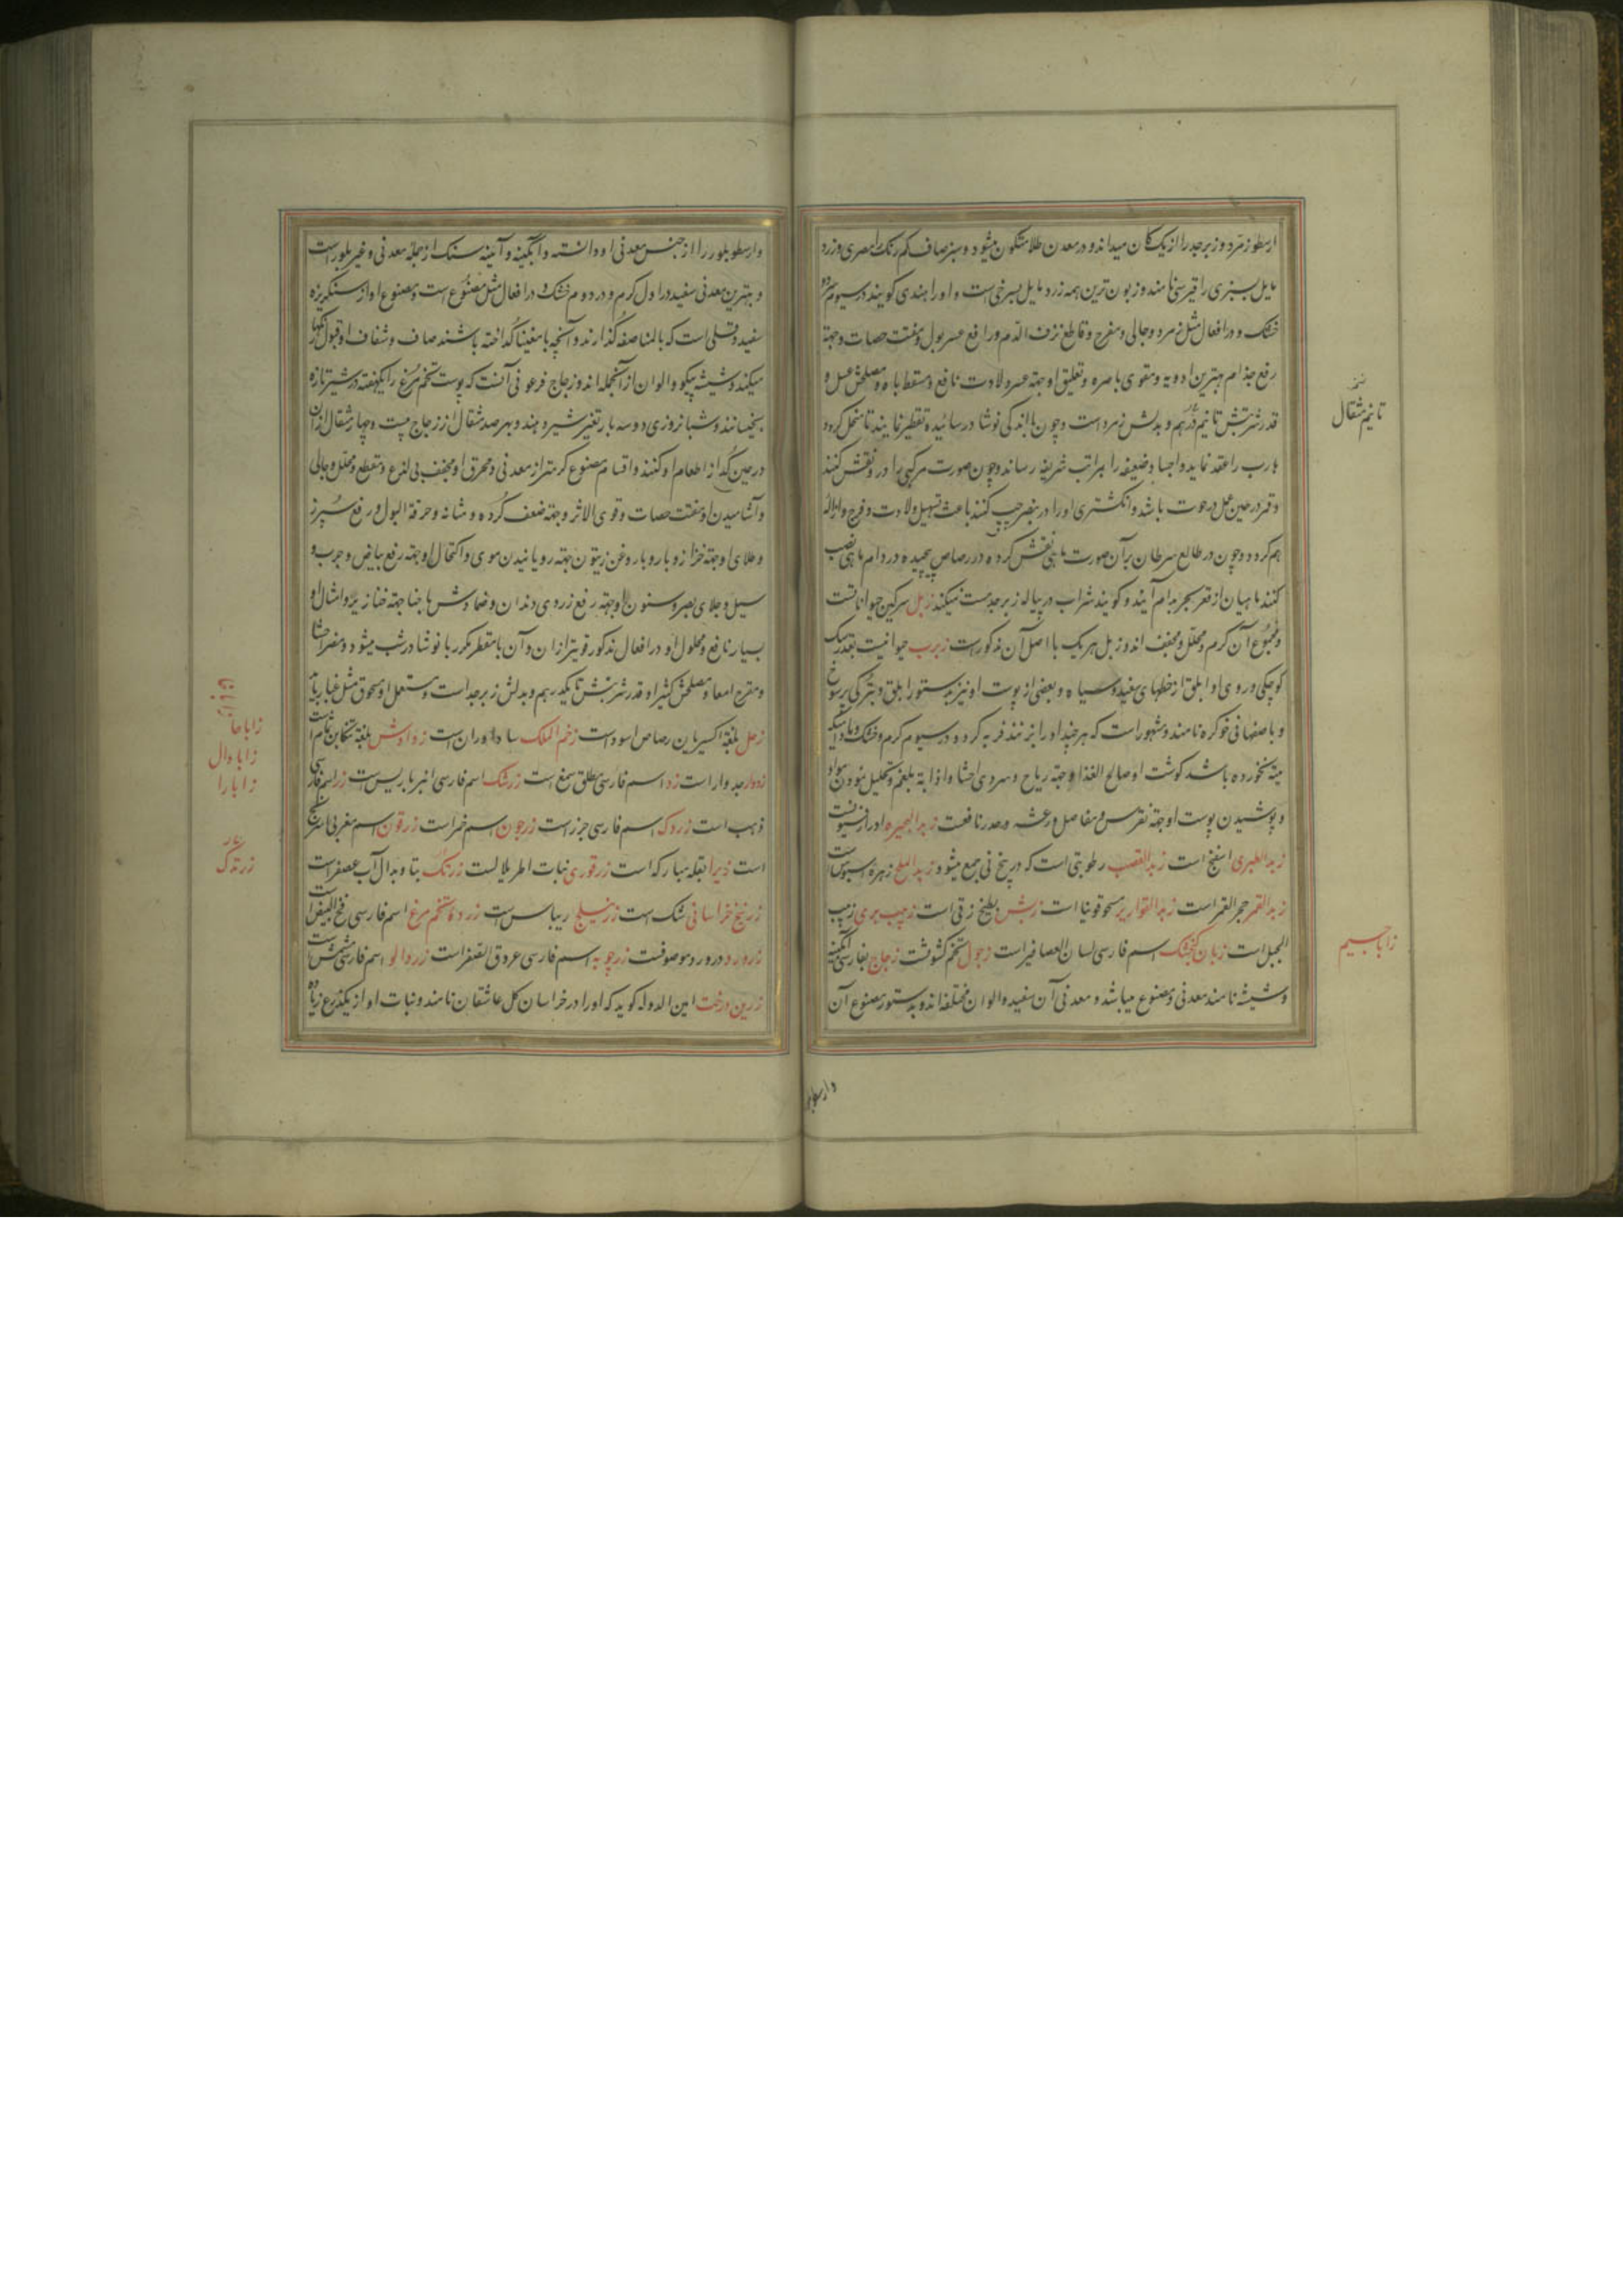 ارسطو زمرد و زبرجد را از یک کان میداند و در معدن طلا متکون میشود و سبز صاف کم رنک را مصری و زرد
مایل بسبزی را قبرسی نامند و زبون ترین همه زرد مایل بسرخی است و او را هندی کویند در سیوم سرد و
خشک و در افعال مثل زمرد و جالی و مفرح و قاطع نزف الدم و رافع عسر بول و مفتت حصات و جهة
رفع جذام بهترین ادویه و مقوی باصره و تعلیق او جهة عسر ولادت نافع و مسقط باه و مصلحش عسل و
قدر شربتش تا نیم درهم و بدلش زمرد است و چون با اندکی نوشادر سائیده تقطیر نمایند تا منحل کردد
هارب را عقد نماید و اجساد ضعیفه را بمراتب شریفه رساند و چون صورت مرکبی را در و نقش کنند
و قمر در حین عمل در حوت باشد و انکشتری او را در خنصر چپ کنند باعث تسهیل ولادت و فرح و ازاله
هم کردد و چون در طالع سرطان بر آن صورت ماهی نقش کرده در رصاص پیچیده در دام ماهی نصب
کنند ماهیان از قعر بحر بدام آیند و کویند شراب در پیاله زبرجد مست نمیکند زبل سرکین حیواناتست
و مجموع آن کرم و محلل و مجفف اند و زبل هر یک با اصل آن مذکور است زبرب حیوانیست بقدر سک
کوچکی و روی او ابلق از خطهای سفید و سیاه و بعضی از پوست او نیز بدستور ابلق و بترکی پرسوخ
و باصفهانی خوکره نامند و مشهور است که هر چند او را بزنند فربه کردد و در سیوم کرم و خشک و مادامیکه
میته نخورده باشد کوشت او صالح الغذا و جهة ریاح و سردی احشا و اذابه بلغم و تحلیل نمودن مواد
و پوشیدن پوست او جهة نقرس و مفاصل و رعشه و خدر نافعست زبد البحیره ادراقیونست
زبد الطبری اسفنج است زبد القصب رطوبتی است که در بیخ نی جمع میشود زبد الملح زهره اسیوس است
زبد القمر حجر القمر است زبد القواریر مسحوقونیا است زبش بطیخ زقی است زبیب بری زبیب
الجبل است زبان کنجشک اسم فارسی لسان العصافیر است زجول تخم کشوث است زجاج بفارسی آبکینه
و شیشه نامند معدنی و مصنوع میباشد و معدنی آن سفید و الوان مختلفه اند و بدستور مصنوع آن
تا نیم مثقال
زاباجسیم
وارسطو بلور
وارسطو بلور را از جنس معدنی او دانسته و آبکینه و آئینه سنک از جمله معدنی و غیر بلور است
و بهترین معدنی سفید در اول کرم و در دوم خشک و در افعال مثل مصنوع است و مصنوع او از سنکریزه
سفید و قلی است که بالمناصفه کذارند و آنچه با مغنیسا کداخته باشند صاف و شفاف او قبول رنکها
میکند و شیشه نیکو و الوان از آنجمله اند و زجاج فرعونی آنست که پوست تخم مرغ را یکهفته در شیر تازه
بخیسانند و شبانروزی دو سه بار تغیر شیر دهند و بر صد مثقال از زجاج بیست و چهار مثقال از آن
در حین کداز اطعام او کنند و اقسام مصنوع کرمتر از معدنی و محرق او مجفف بی لذع و مقطع و محلل و جالی
و آشامیدن او مفتت حصات و قوی الاثر و جهة ضعف کرده و مثانه و حرقة البول و رفع سپرز
و طلای او جهة حزاز و بارو با روغن زیتون جهة رویانیدن موی و اکتحال او جهة رفع بیاض و جرب و
سبل و جلای بصر و سنون او جهة رفع زردی دندان و ضمادش با حنا جهة خنازیر و امثال او
بسیار نافع و محلول او در افعال مذکور قویتر از آن و آن با مقطر مکرر با نوشادر شب میشود و مضر احشا
و مقرح امعا و مصلحش کثیرا و قدر شربتش تا یکدرهم و بدلش زبرجد است و مستعمل او مسحوق مثل غبار باید
زحل بلغة اکسیریان رصاص اسود است زخم الملک ساداوران است زدادوش بلغة تنکابن ثمام است
زدوار جدوار است زد اسم فارسی مطلق صمغ است زرشک اسم فارسی انبر باریس است زر اسم فارسی
ذهب است زردک اسم فارسی جزر است زرجون اسم خمر است زرقون اسم مغربی اسرنج
است زیرا بقله مبارکه است زرقوری نبات اطریلالست زرتک بتا و بدال آب عصفر است
زرنیخ خراسانی شک است زرنیلج ریباس است زرده تخم مرغ اسم فارسی مح البیض است
زرورد در ورد موصوفست زرچوبه اسم فارسی عروق الصفر است زردالو اسم فارسی مشمش است
زرین درخت امین الدوله کوید که او را در خراسان کل عاشقان نامند و نبات او از یکذرع زیاده
زاباحا
زاباوال
زابارا
زرتدک